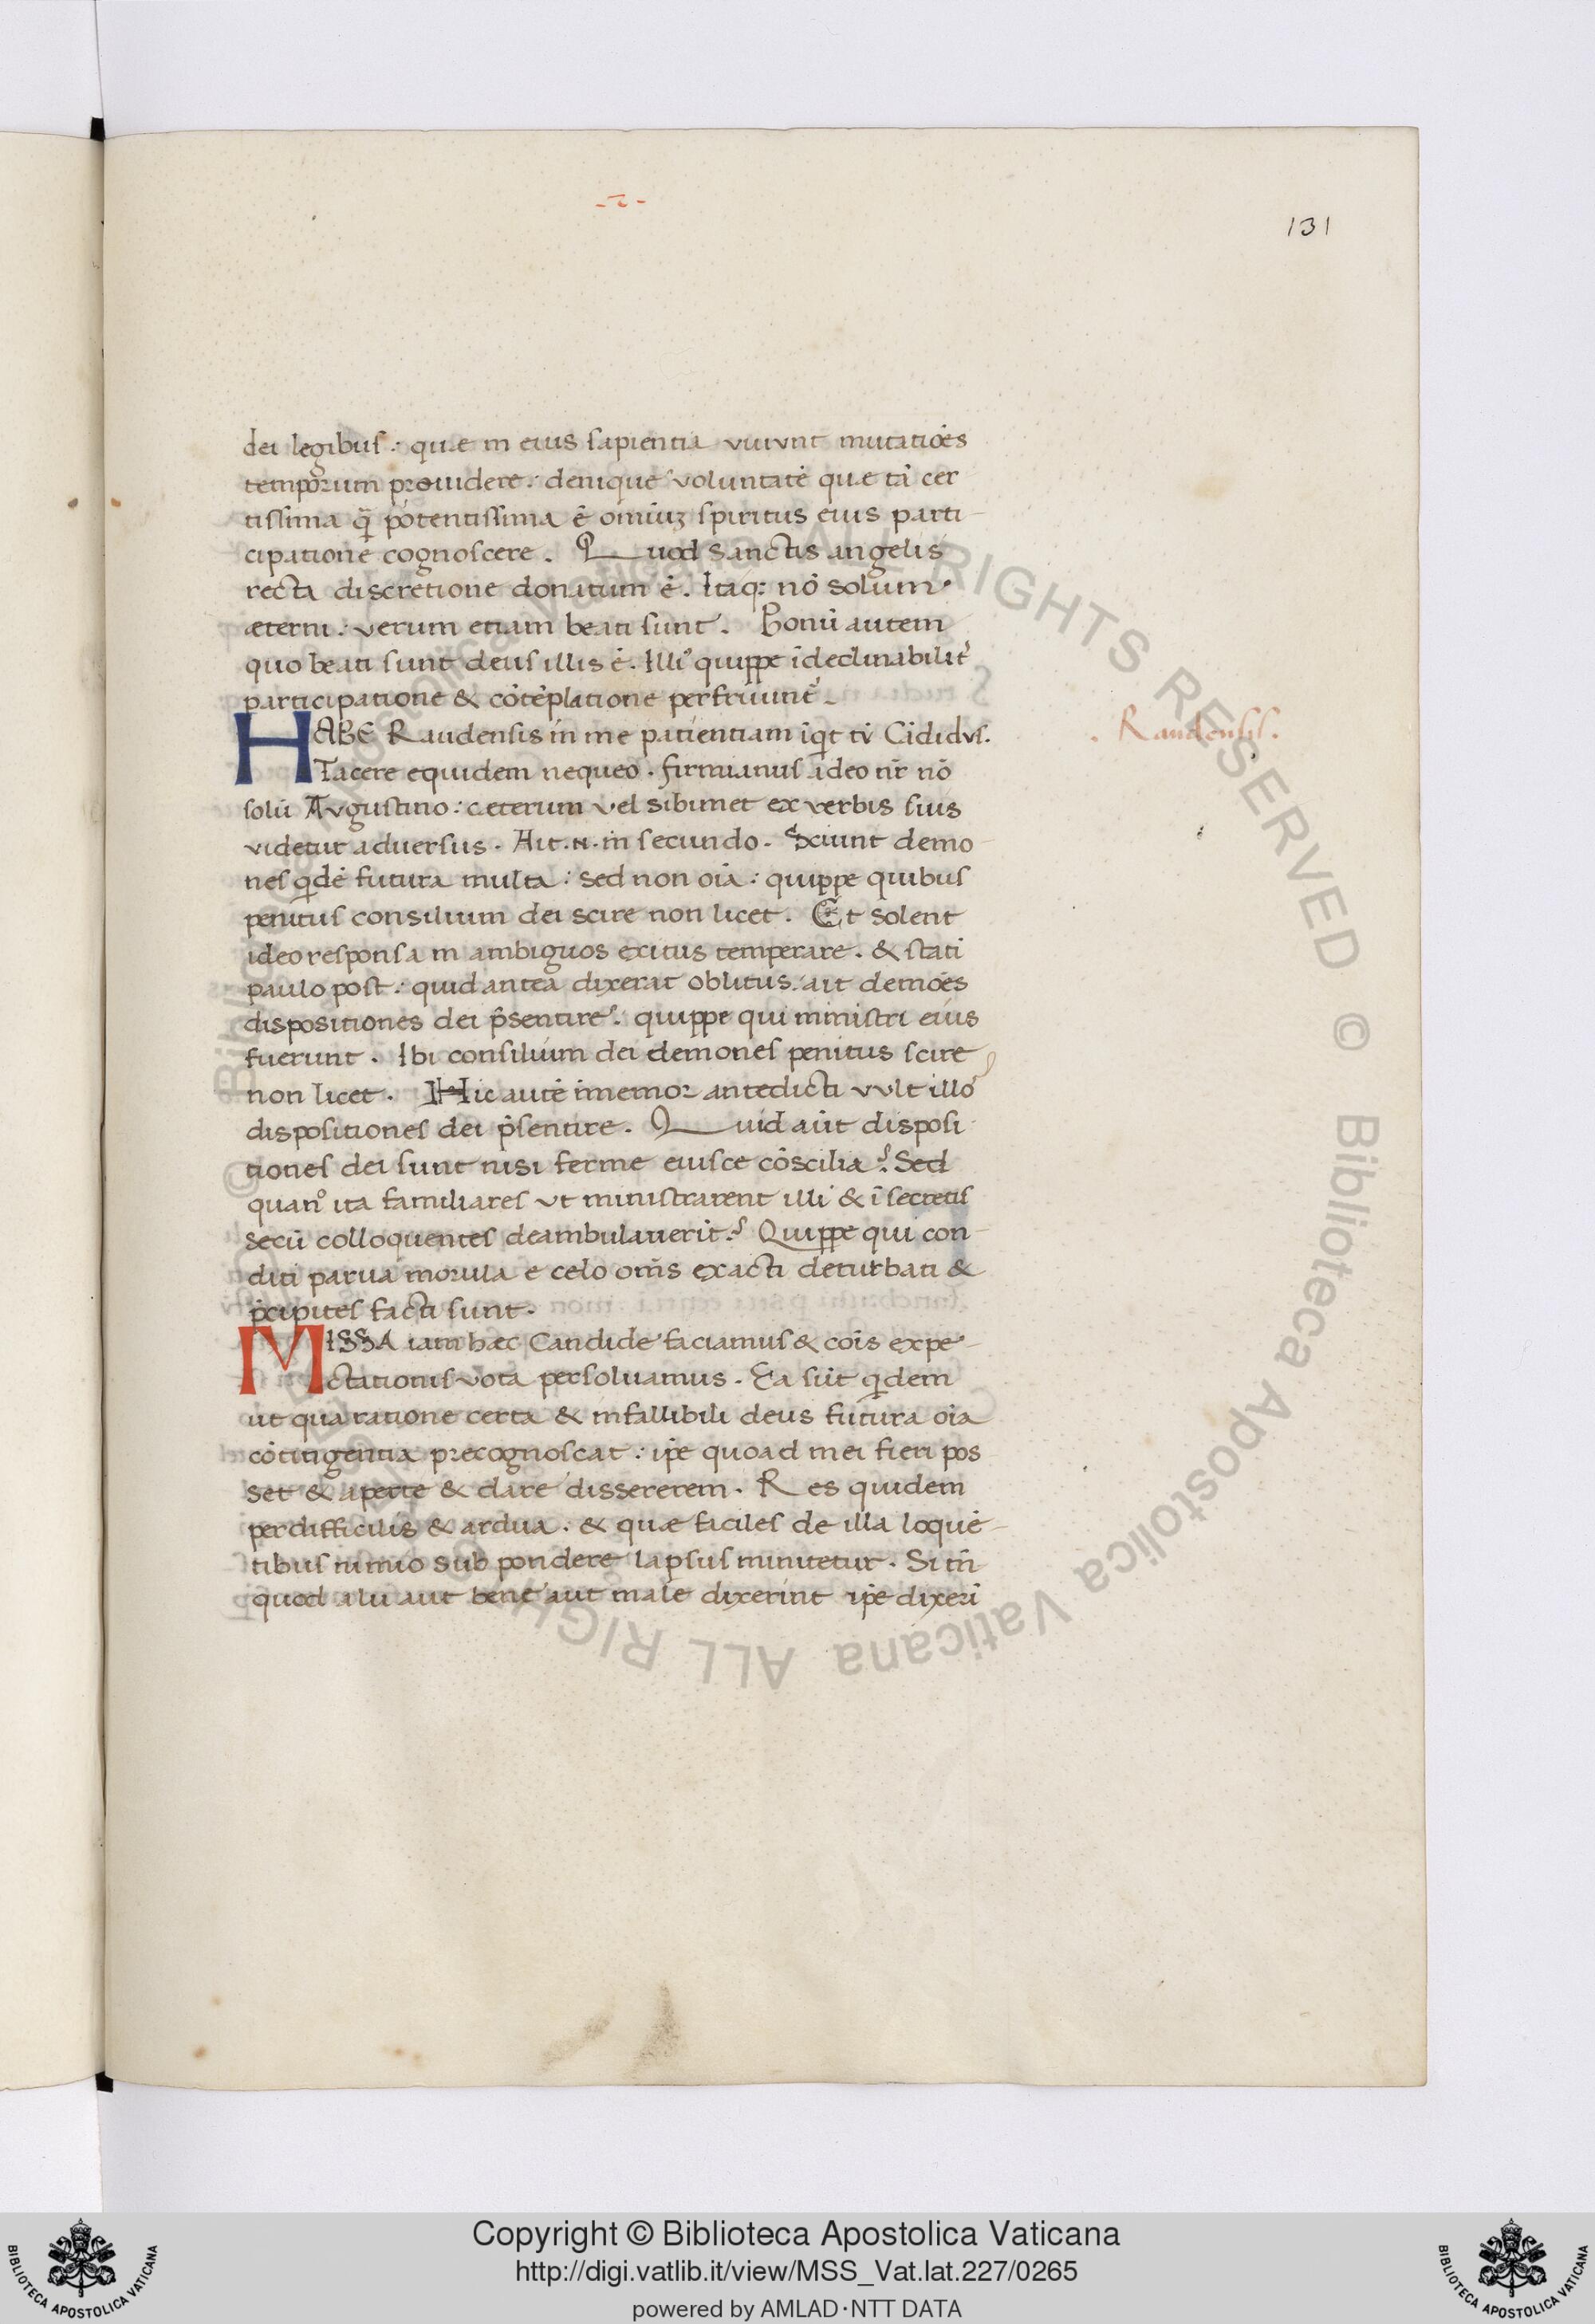 -2-
131
dei legibus: quae in eius sapientia viuvnt mutatiōes
temporum prouidere: denique voluntatē quae tā cer
tissima q̄ potentissima ē omiuꝫ spiritus eius parti-
cipatione cognoscere. Quod sanctis angelis
recta discretione donatum ē. Itaq: nō solum
æterni: verum etiam beati sunt. Bonū autem
quo beati sunt deus illis ē. Illi quippe īdeclinabilit᷑
participatione & cōtēplatione perfruunt᷑.
HABE Raudensis in me patientiam īqt tū Cādidvs.
. Raudensis.
Tacere equidem nequeo. firmianus adeo nr̄ nō
solū Avgustino: ceterum vel sibimet ex verbis suis
videtur aduersus. Ait .n. in secundo. Sciunt demo-
nes qdē futura multa: sed non oīa: quippe quibus
penitus consilium dei scire non licet. Et solent
ideo responsa in ambiguos exitus temperare. & statī
paulo post: quid antea dixerat oblitus: ait demōes
dispositiones dei p̄sentire: quippe qui ministri eius
fuerunt. Ibi consilium dei demones penitus scire
non licet. Hic autē īmemor antedicti vvlt illos
dispositiones dei p̄sentire. Quid aūt disposi-
tiones dei sunt nisi ferme eiusce cōscilia? Sed
quanº ita familiares vt ministrarent illi & ī secretis
secū colloquentes deambulauerīt? Quippe qui con-
diti parua morula e celo om̄s exacti deturbati &
p̄cipites facti sunt.
MISSA iam hæc Candide faciamus & cōis expe-
ctationis vota persoluamus. Ea sūt qdem
ut qua ratione certa & infallibili deus futura oīa
cōtitigentia precognoscat: ip̄e quoad mei fieri pos
set & aperte & clare dissererem. Res quidem
perdifficilis & ardua: & quæ faciles de illa loquē-
tibus nimio sub pondere lapsus minitetur. Si tn̄
quod alii aut bene aut male dixerint ip̄e dixerī
Copyright © Biblioteca Apostolica Vaticana
http://digi.vatlib.it/view/MSS_Vat.lat.227/0265
powered by AMLAD·NTT DATA
BIBLIOTECA APOSTOLICA VATICANA
BIBLIOTECA APOSTOLICA VATICANA
© Biblioteca Apostolica Vaticana ALL RIGHTS RESERVED © Biblioteca Apostolica Vaticana ALL RIGHTS RESERVED